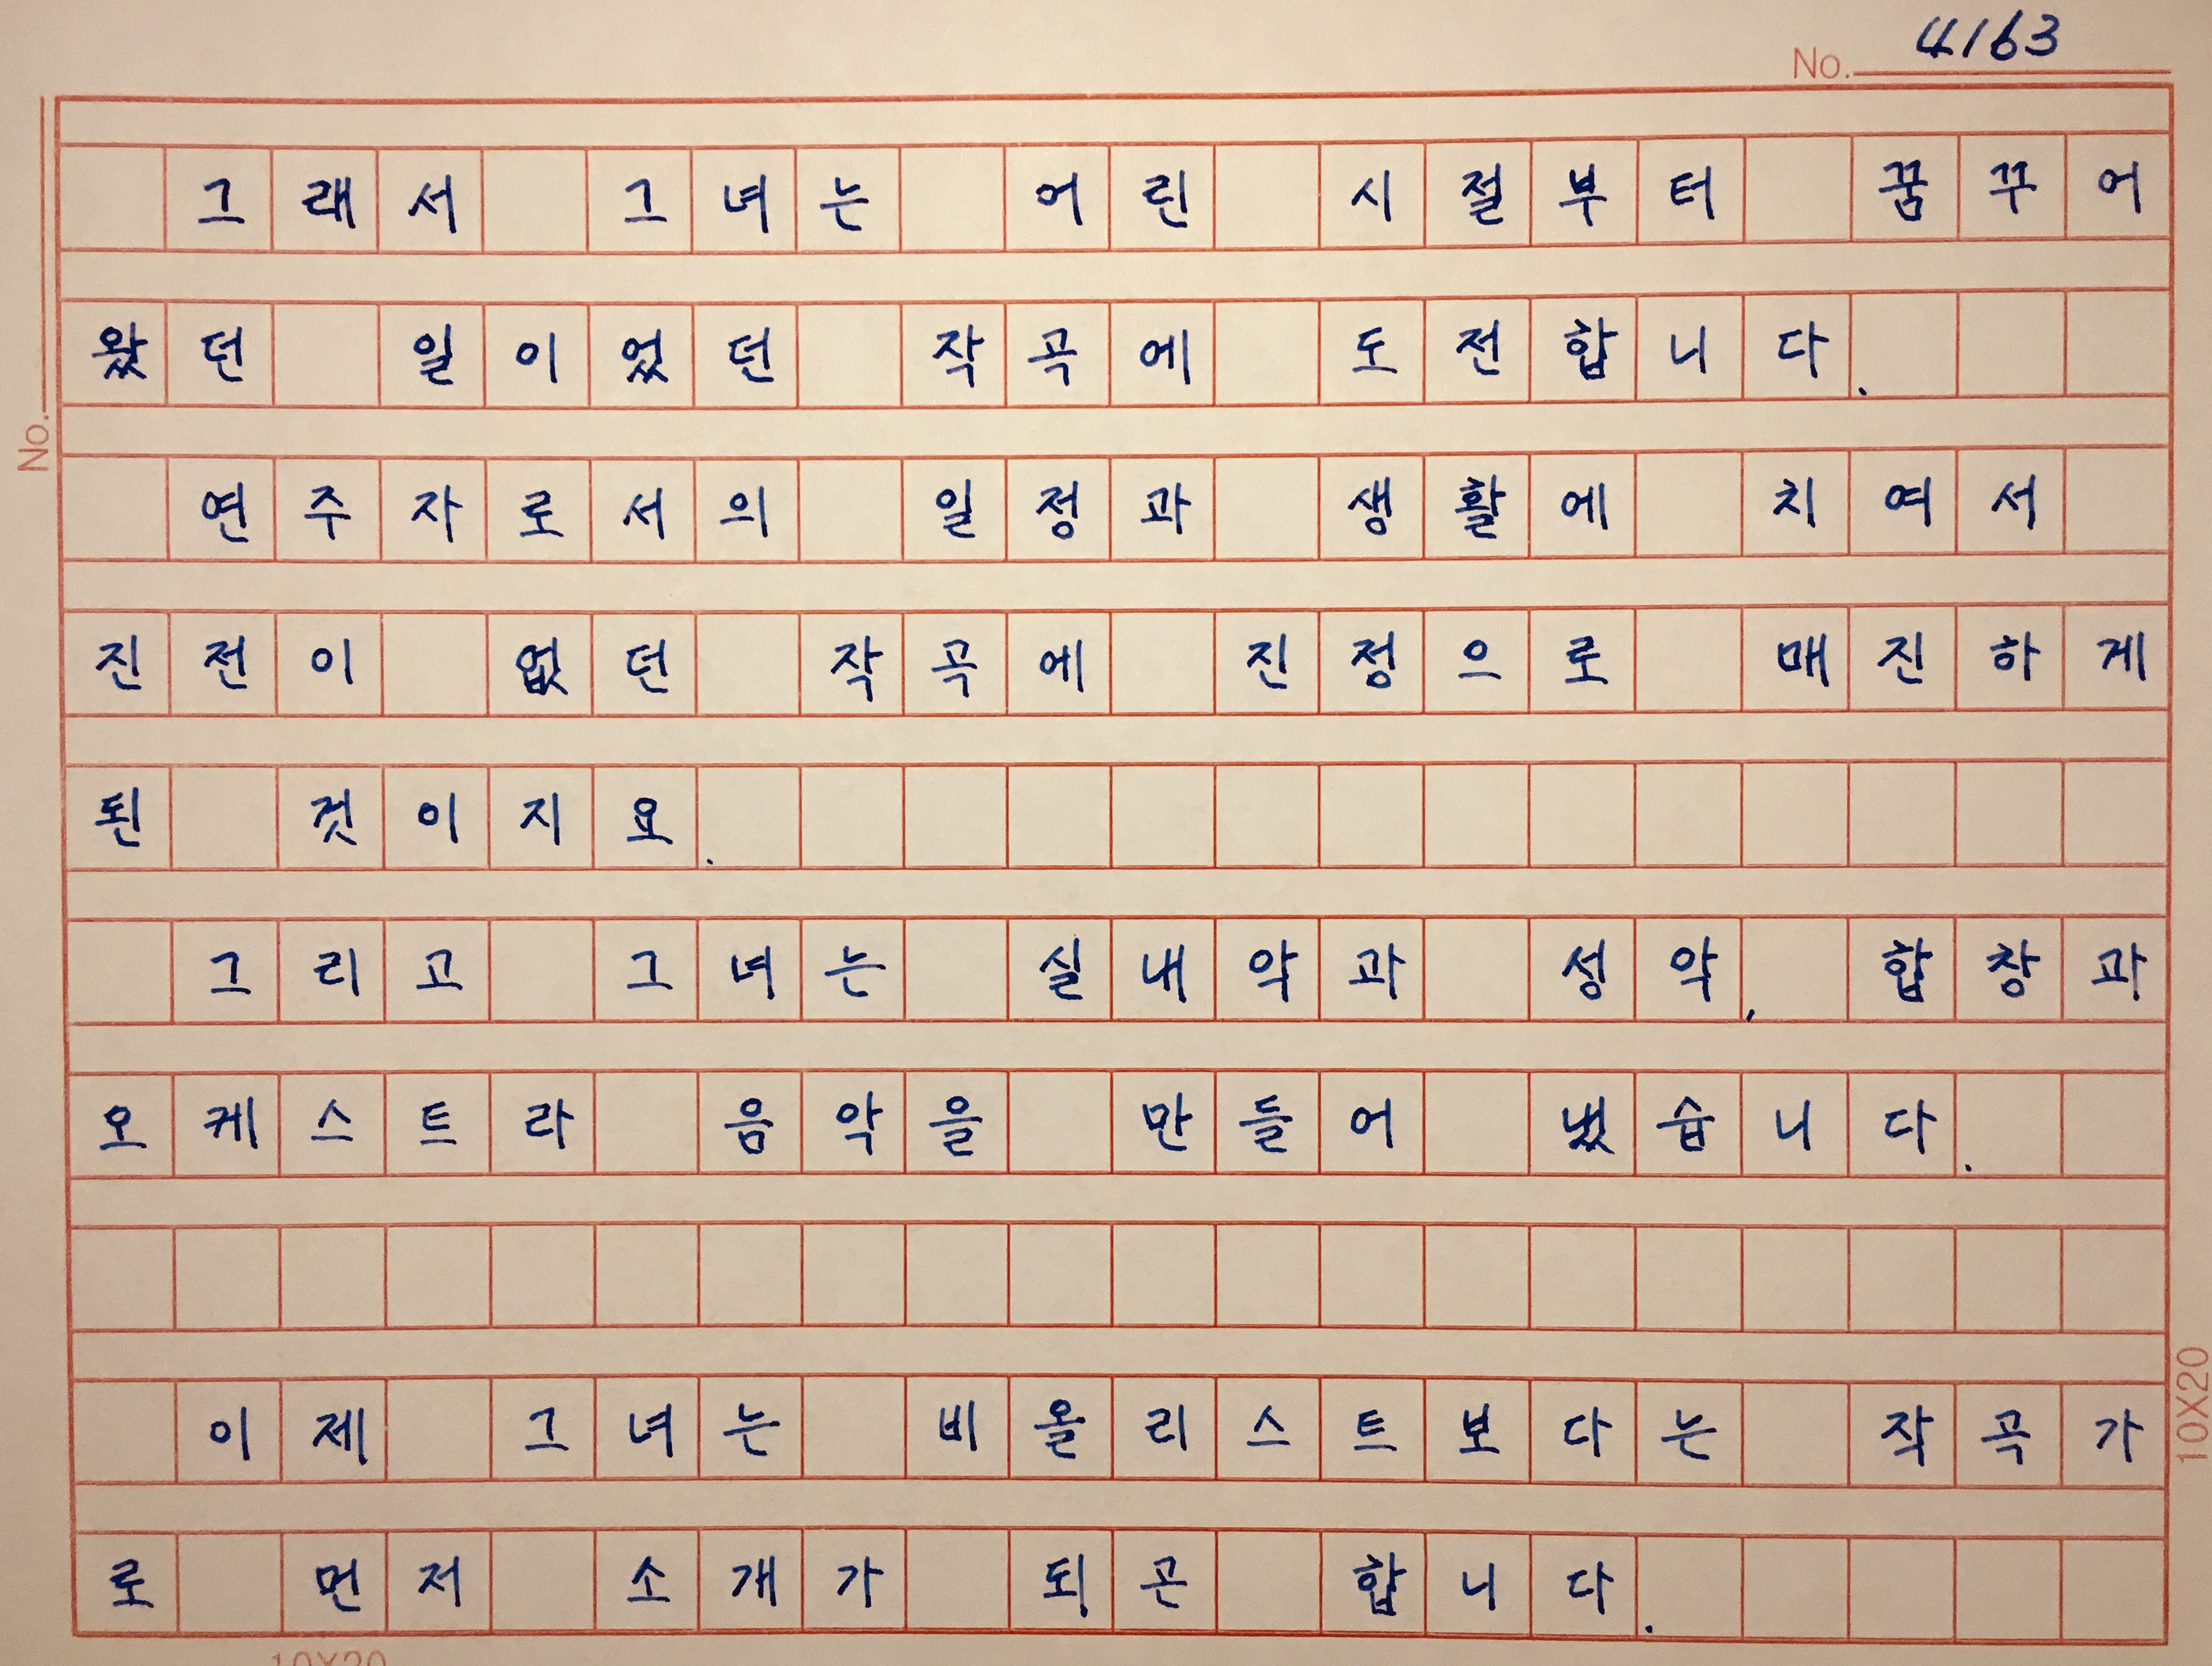 4163
No.
그래서 그녀는 어린 시절부터 꿈꾸어
왔던 일이었던 작곡에 도전합니다.
No.
연주자로서의 일정과 생활에 치여서
진전이 없던 작곡에 진정으로 매진하게
된 것이지요.
그리고 그녀는 실내악과 성악, 합창과
오케스트라 음악을 만들어 냈습니다.
이제 그녀는 비올리스트보다는 작곡가
10X20
로 먼저 소개가 되곤 합니다.
10X20